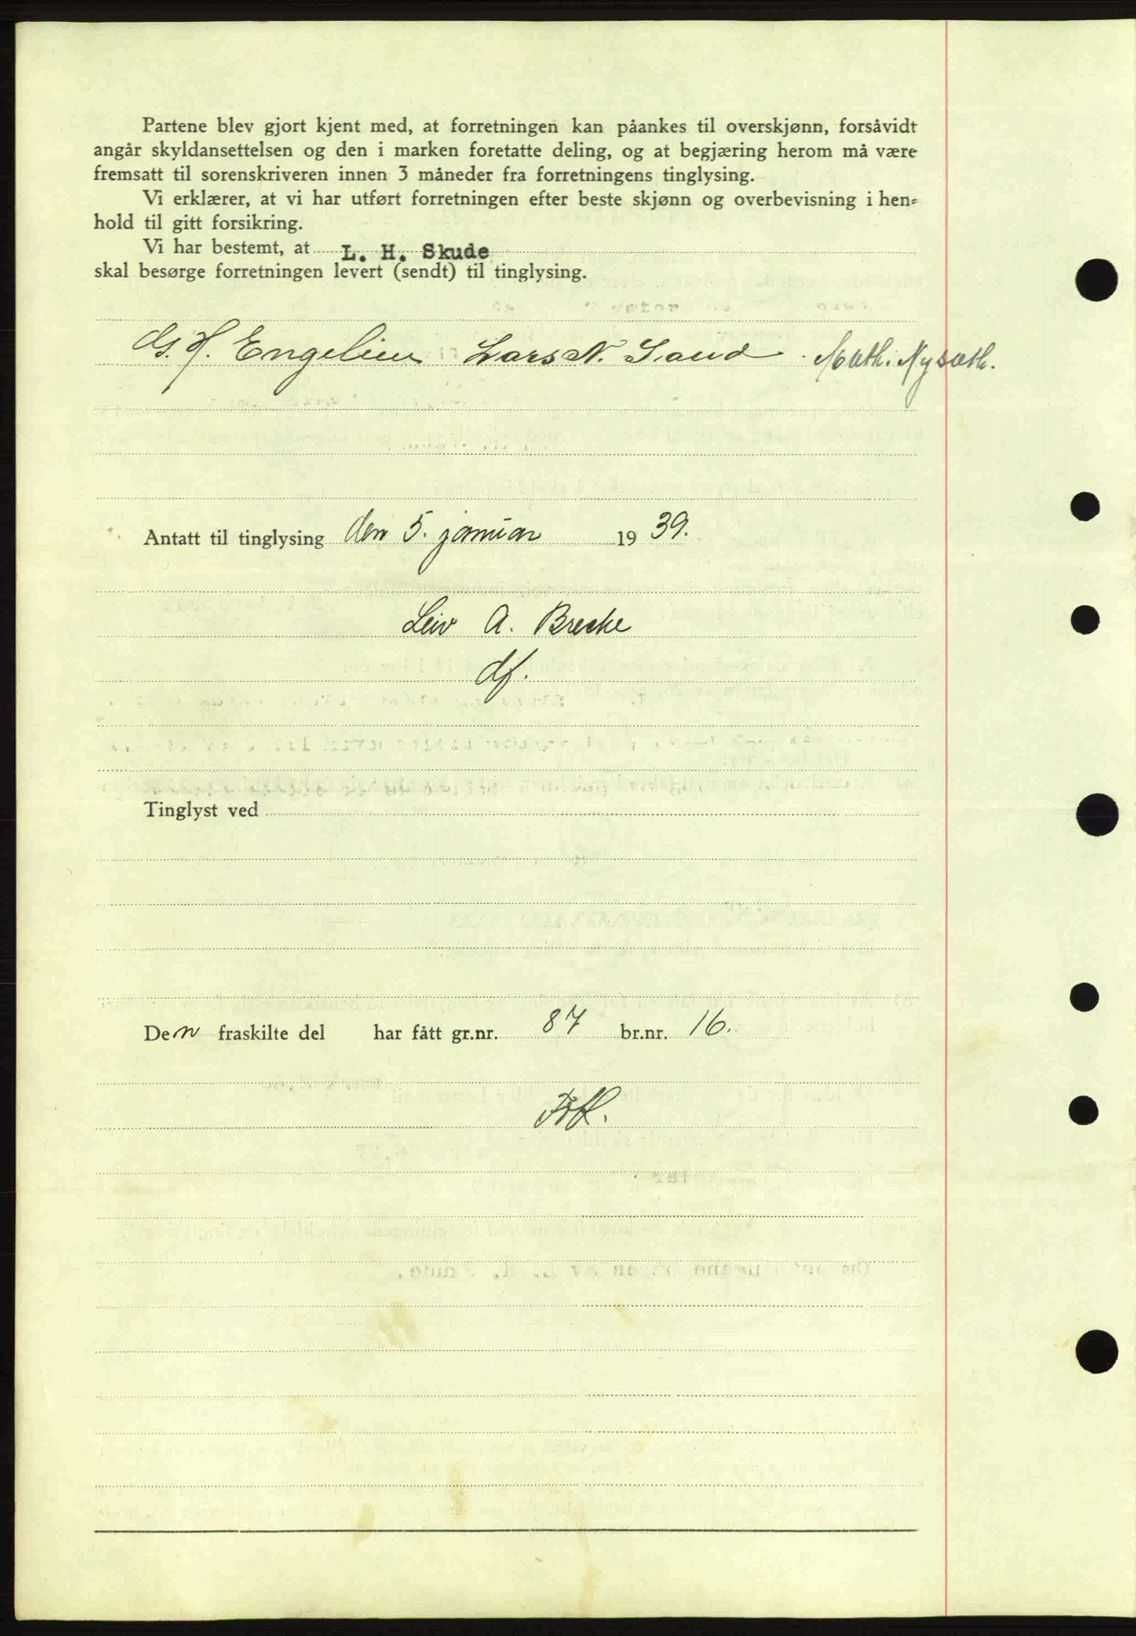 Partene blev gjort kjent med, at forretningen kan påankes til overskjønn, forsåvidt
angår skyldansettelsen og den i marken foretatte deling, og at begjæring herom må være
fremsatt til sorenskriveren innen 3 måneder fra forretningens tinglysing.
Vi erklærer, at vi har utført forretningen efter beste skjønn og overbevisning i hen-
hold til gitt forsikring.
Vi har bestemt, at L. H. Skude
skal besørge forretningen levert (sendt) til tinglysing.
G. H. Engelien Lars N. Sand Math. Nysæth.
Antatt til tinglysing den 5. januar 1939.
Leiv A. Brecke
df.
Tinglyst ved
Den fraskilte del har fått gr.nr. 87 br.nr. 16.